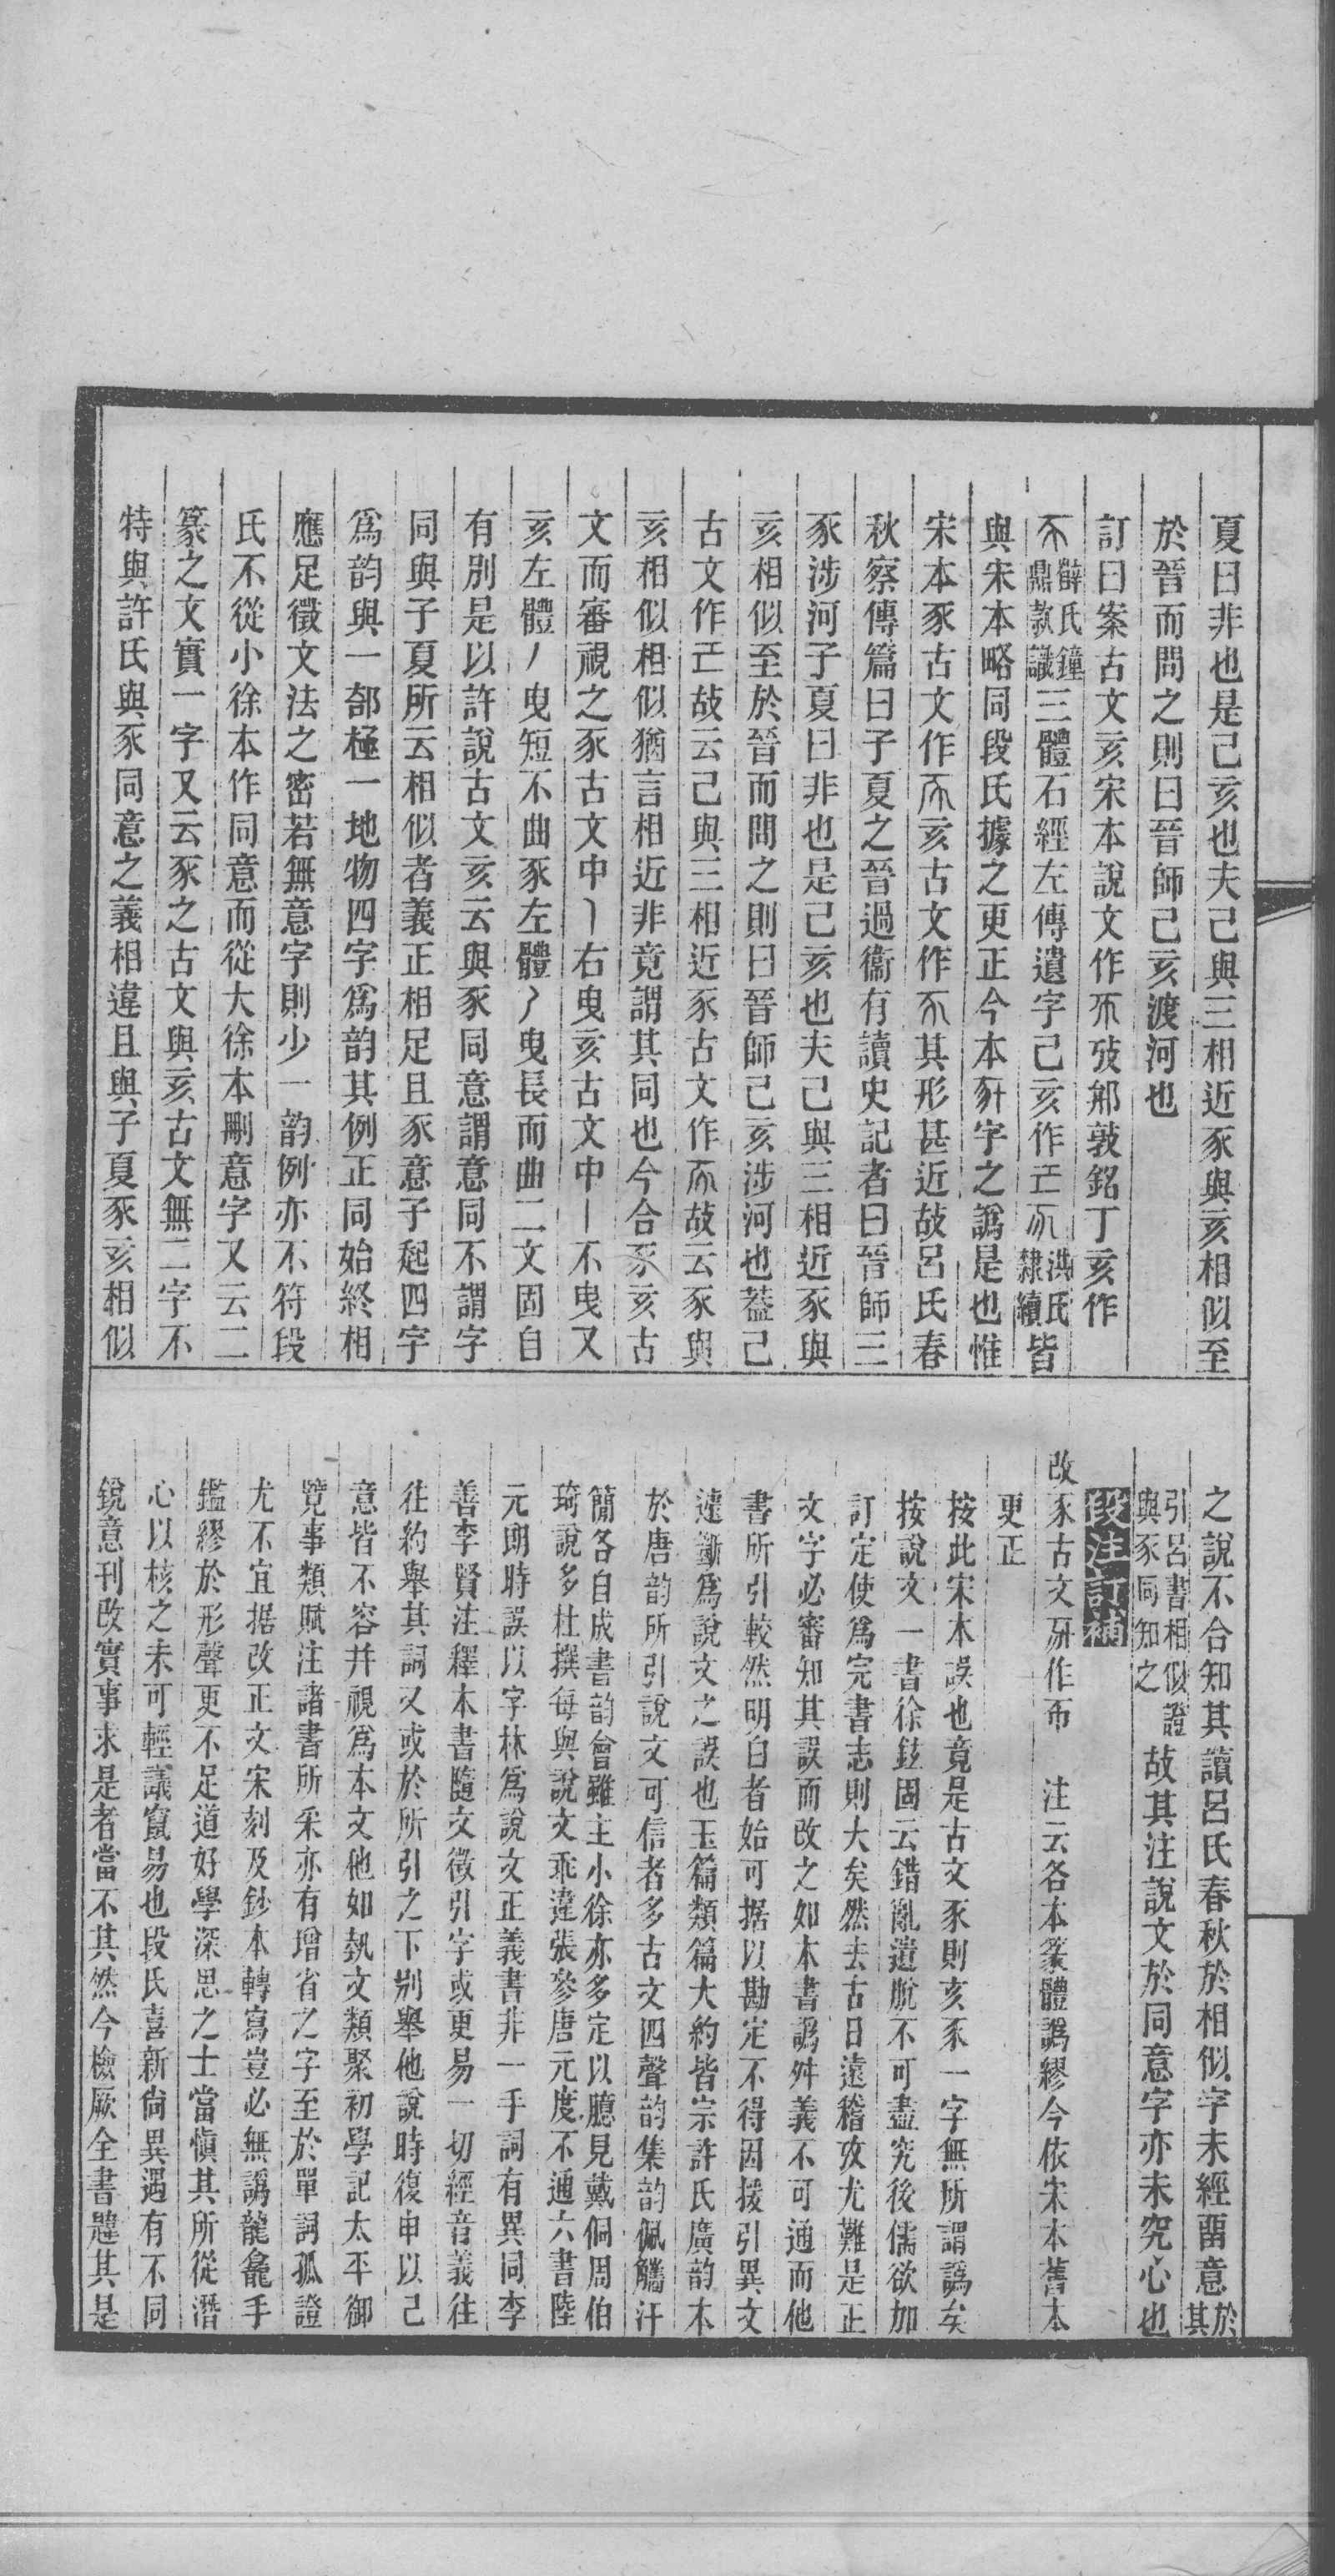 夏曰非也是己亥也夫己與三相近豕與亥相似至
於晉而問之則曰晉師己亥渡河也
訂曰案古文亥宋本說文作𠀬攷䢵敦銘丁亥作
𠀬薛氏鐘鼎款識三體石經左傳遺字己亥作𠀬洪氏隸續皆
與宋本略同段氏據之更正今本字之譌是也惟
宋本豕古文作亥古文作其形甚近故呂氏春
秋察傳篇曰子夏之晉過衞有讀史記者曰晉師三
豕涉河子夏曰非也是己亥也夫己與三相近豕與
亥相似至於晉而問之則曰晉師己亥涉河也葢己
古文作故云己與三相近豕古文作故云豕與
亥相似相似猶言相近非竟謂其同也今合豕亥古
文而審視之豕古文中右曳亥古文中丨不曳又
亥左體丿曳短不曲豕左體曳長而曲二文固自
有別是以許說古文亥云與豕同意謂意同不謂字
同與子夏所云相似者義正相足且豕意子起四字
爲韵與一部極一地物四字爲韵其例正同始終相
應足徵文法之密若無意字則少一韵例亦不符段
氏不從小徐本作同意而從大徐本刪意字又云二
篆之文實一字又云豕之古文與亥古文無二字不
特與許氏與豕同意之義相違且與子夏豕亥相似
之說不合知其讀呂氏春秋於相似字未經畱意於其
引呂書相似證與豕同知之故其注說文於同意字亦未究心也
段注訂補
改豕古文作 注云各本篆體譌繆今依宋本舊本
更正
按此宋本誤也竟是古文豕則亥豕一字無所謂譌矣
按說文一書徐鉉固云錯亂遺脫不可盡究後儒欲加
訂定使爲完書志則大矣然去古日遠稽攷尤難是正
文字必審知其誤而改之如本書譌舛義不可通而他
書所引較然明白者始可据以勘定不得因援引異文
遽斷爲說文之誤也玉篇類篇大約皆宗許氏廣韵本
於唐韵所引說文可信者多古文四聲韵集韵佩觿汗
簡各自成書韵會雖主小徐亦多定以臆見戴侗周伯
琦說多杜撰每與說文乖違張參唐元度不通六書陸
元朗時誤以字林爲說文正義書非一手詞有異同李
善李賢注釋本書隨文徵引字或更易一切經音義往
往約舉其詞又或於所引之下別舉他說時復申以己
意皆不容并視爲本文他如埶文類聚初學記太平御
覽事類賦注諸書所采亦有增省之字至於單詞孤證
尤不宜据改正文宋刻及鈔本轉寫豈必無譌龍龕手
鑑繆於形聲更不足道好學深思之士當愼其所從潛
心以核之未可輕議竄易也段氏喜新尙異遇有不同
銳意刊改實事求是者當不其然今檢厥全書韙其是